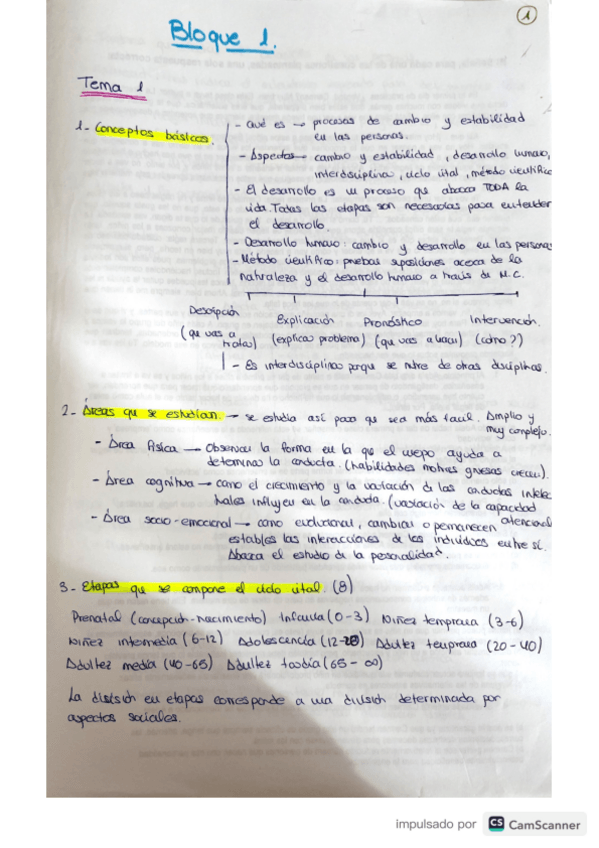 1
Bloque 1.
Tema 1
1- Conceptos básicos.
- Qué es → procesos de cambio y estabilidad
en las personas.
- Aspectos → cambio y estabilidad, desarrollo humano,
interdisciplina, ciclo vital, método científico
- El desarrollo es un proceso que abarca TODA la
vida. Todas las etapas son necesarias para entender
el desarrollo.
- Desarrollo humano: cambio y desarrollo en las personas
- Método científico: pruebas suposiciones acerca de la
naturaleza y el desarrollo humano a través de M.C.
Descripción Explicación Pronóstico Intervención.
(que vas a tratar) (explica problema) (que vas a hacer) (cómo?)
- Es interdisciplina porque se nutre de otras disciplinas.
2- Áreas que se estudian. → se estudia así para que sea más facil. Amplio y
muy complejo.
- Área física → Observar la forma en la que el cuerpo ayuda a
determinar la conducta. (habilidades motrices gruesas crecen).
- Área cognitiva → como el crecimiento y la variación de las conductas intelec
tuales influyen en la conducta. (variación de la capacidad
atencional
- Área socio-emocional → como evolucionan, cambian o permanecen
estables las interacciones de los individuos entre sí.
Abarca el estudio de la personalidad.
3- Etapas que se compone el ciclo vital. (8)
Prenatal (concepción-nacimiento) Infancia (0-3) Niñez temprana (3-6)
Niñez intermedia (6-12) Adolescencia (12-20) Adultez temprana (20-40)
Adultez media (40-65) Adultez tardía (65-∞)
La división en etapas corresponde a una división determinada por
aspectos sociales.
impulsado por CS CamScanner